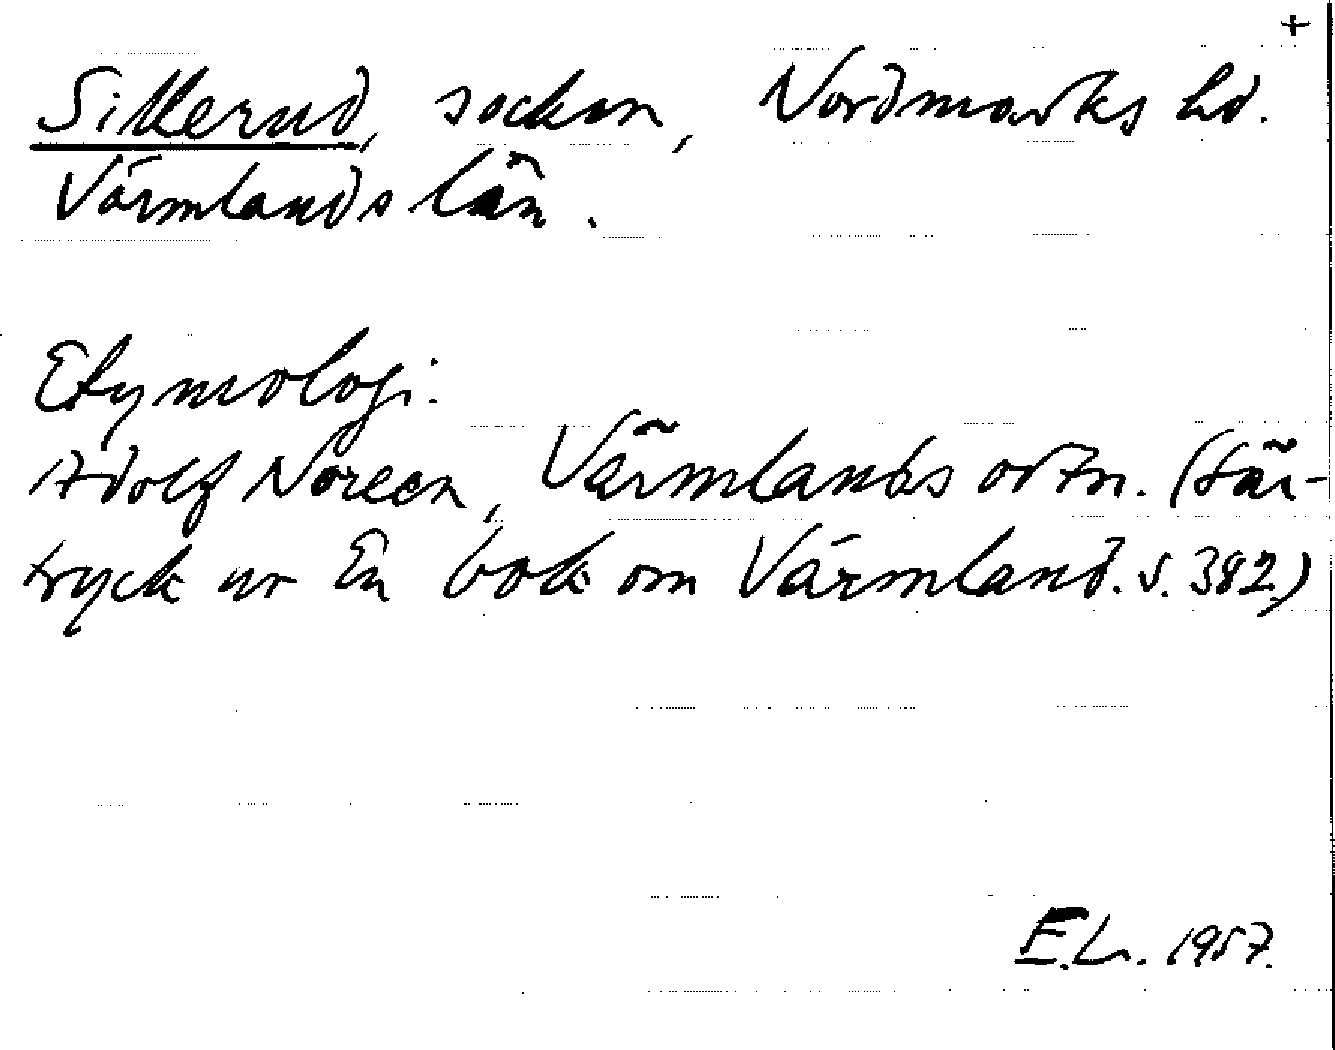 +
Sillerud, socken, Nordmarks hd.
Värmlands län.
Etymologi:
Adolf Noreen, Värmlands ortn. (Sär-
tryck ur En bok om Värmland. s. 382.)
E.L. 1957.